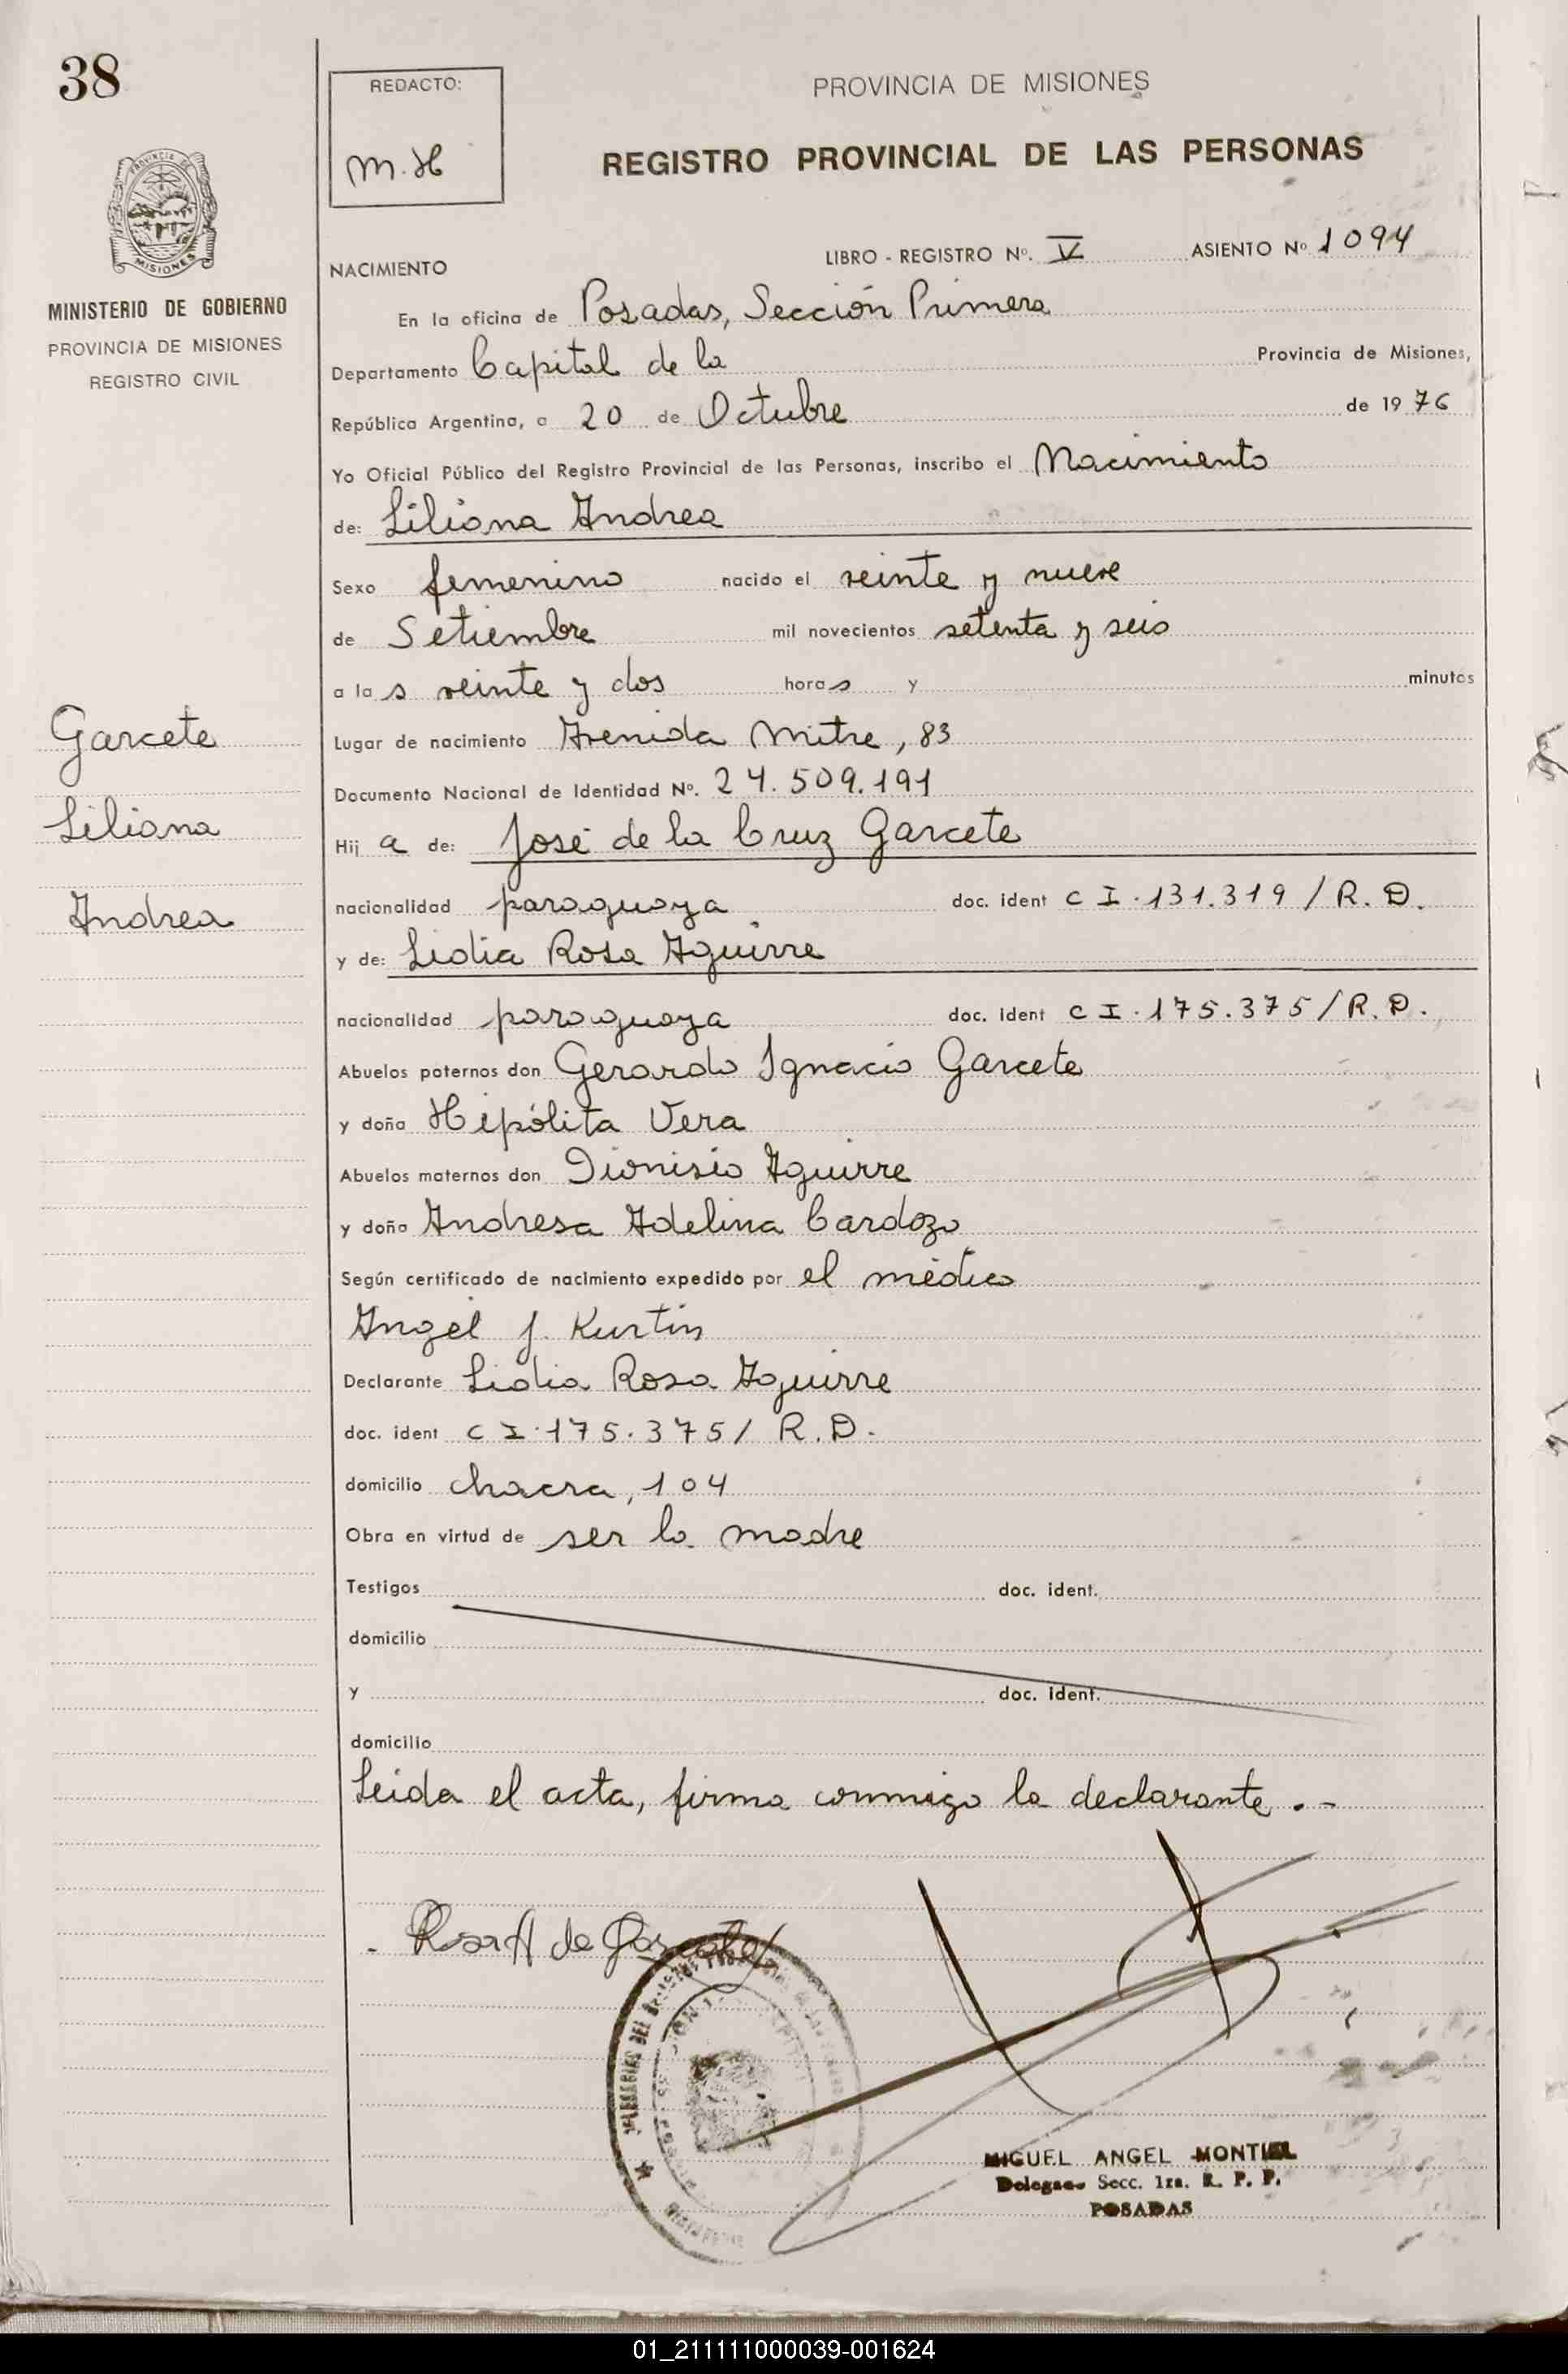 38
REDACTO:
M.H
PROVINCIA DE MISIONES
REGISTRO PROVINCIAL DE LAS PERSONAS
MISIONES
MINISTERIO DE GOBIERNO
PROVINCIA DE MISIONES
REGISTRO CIVIL
LIBRO - REGISTRO Nº. V ASIENTO Nº 1094
NACIMIENTO
En la oficina de Posadas, Sección Primera
Departamento Capital de la Provincia de Misiones,
República Argentina, a 20 de Octubre de 1976
Yo Oficial Público del Registro Provincial de las Personas, inscribo el Nacimiento
de: Liliana Andrea
Sexo femenino nacido el veinte y nueve
de Setiembre mil novecientos setenta y seis
a las veinte y dos horas y minutos
Garcete
Liliana
Andrea
Lugar de nacimiento Avenida Mitre, 83
Documento Nacional de Identidad Nº. 24.509.191
Hija de: José de la Cruz Garcete
nacionalidad paraguaya doc. ident C I. 131.319 / R. D.
y de: Lidia Rosa Aguirre
nacionalidad paraguaya doc. ident C I. 175.375 / R. D.
Abuelos paternos don Gerardo Ignacio Garcete
y doña Hipólita Vera
Abuelos maternos don Dionisio Aguirre
y doña Andresa Adelina Cardozo
Según certificado de nacimiento expedido por el médico
Angel J. Kurtin
Declarante Lidia Rosa Aguirre
doc. ident C I. 175.375 / R. D.
domicilio chacra, 104
Obra en virtud de ser la madre
Testigos doc. ident.
domicilio
y doc. ident.
domicilio
Leida el acta, firma conmigo la declarante . -
Rosa A de Garcete
MIGUEL ANGEL MONTIEL
Delegado Secc. 1ra. R. P. P.
POSADAS
01_211111000039-001624